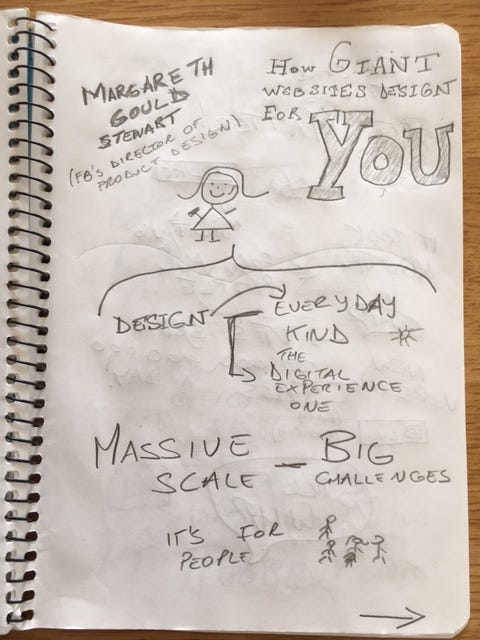 MARGARETH
GOULD
STEWART
(FB'S DIRECTOR OF
PRODUCT DESIGN)
HOW GIANT
WEBSITES DESIGN
FOR YOU
DESIGN
EVERYDAY
KIND
THE
DIGITAL
EXPERIENCE
ONE
MASSIVE
SCALE
–
BIG
CHALLENGES
IT'S FOR
PEOPLE